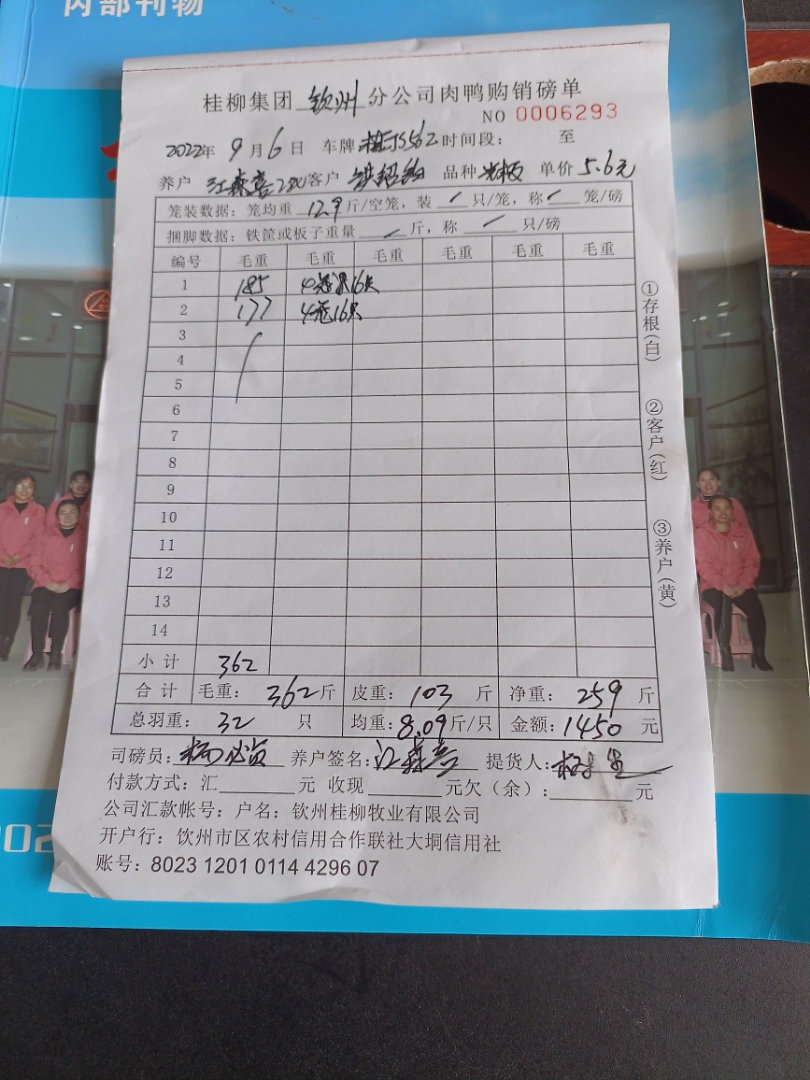 内部刊物
桂柳集团 钦州 分公司肉鸭购销磅单
NO 0006293
2022年 9月6日 车牌 5562 时间段: 至
养户 江森喜 客户 品种 光板 单价 5.6元
笼装数据: 笼均重 12.9 斤/空笼, 装 / 只/笼, 称 / 笼/磅
捆脚数据: 铁筐或板子重量 / 斤, 称 / 只/磅
编号 毛重 毛重 毛重 毛重 毛重 毛重
1 185 16只
2 177 4笼16只
3
4
5
6
7
8
9
10
11
12
13
14
小计 362
合计 毛重: 362斤 皮重: 103 斤 净重: 259 斤
总羽重: 32 只 均重: 8.09斤/只 金额: 1450 元
司磅员: 养户签名: 江森喜 提货人:
付款方式: 汇 元 收现 元欠(余): 元
公司汇款帐号: 户名: 钦州桂柳牧业有限公司
开户行: 钦州市区农村信用合作联社大垌信用社
账号: 8023 1201 0114 4296 07
①存根(白)
②客户(红)
③养户(黄)